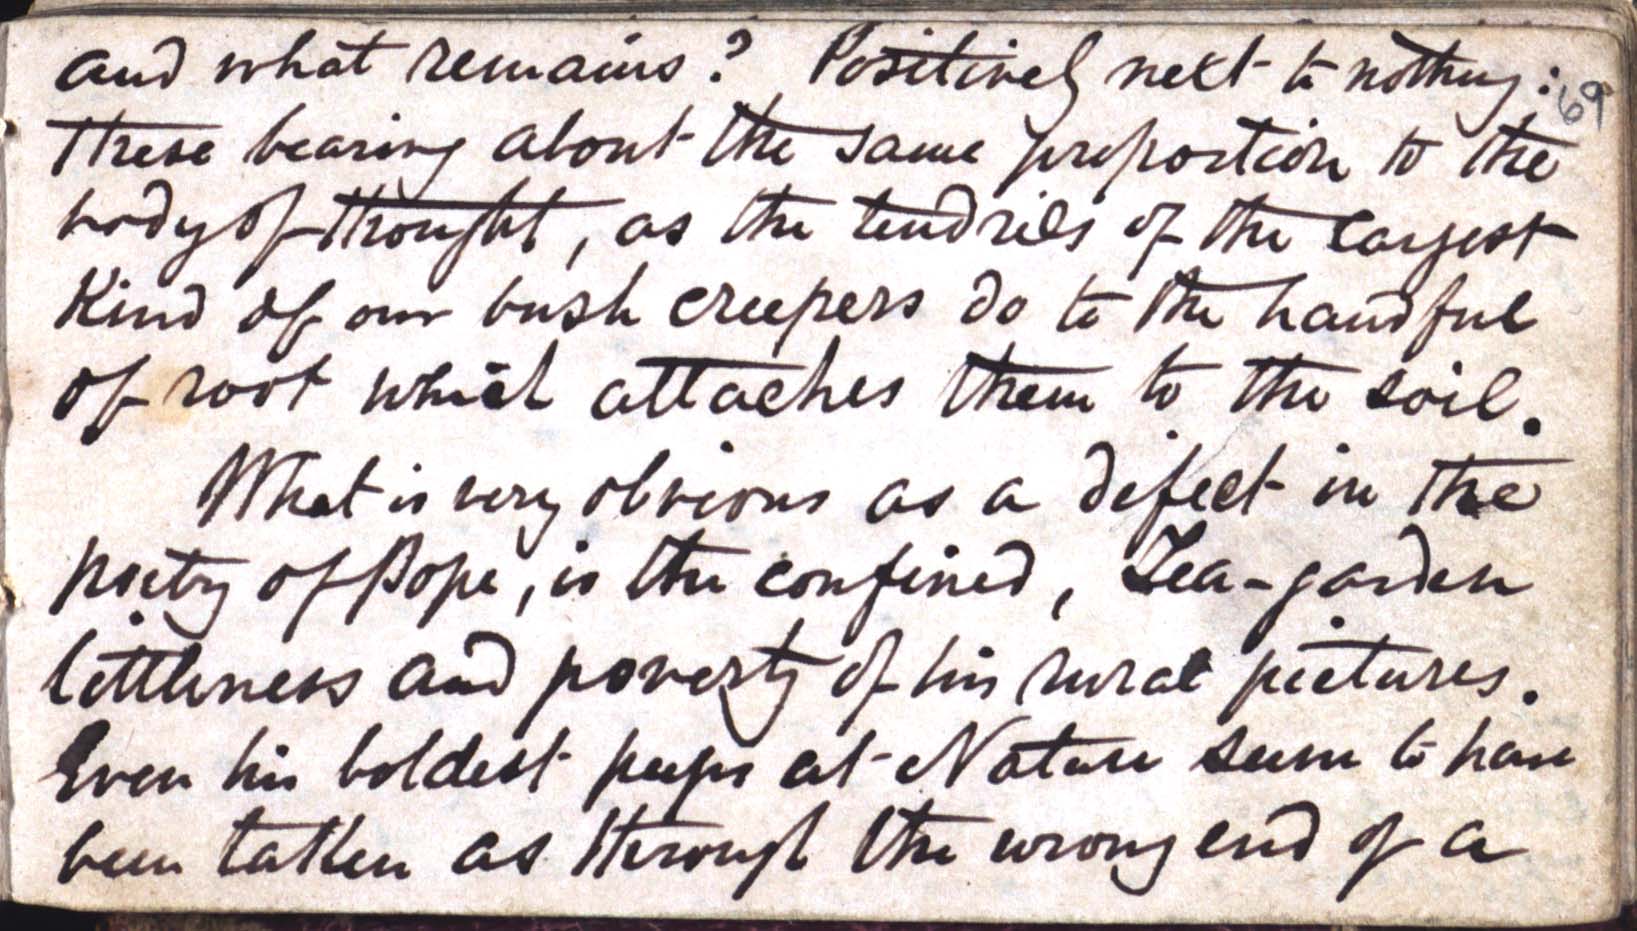 and what remains? Positively next to nothing: 69
these bearing about the same proportion to the
body of thought, as the tendrils of the largest
kind of our bush creepers do to the handful
of root which attaches them to the soil.
What is very obvious as a defect in the
poetry of Pope, is the confined, Tea-garden
littleness and poverty of his rural pictures.
Even his boldest peeps at Nature seem to have
been taken as through the wrong end of a